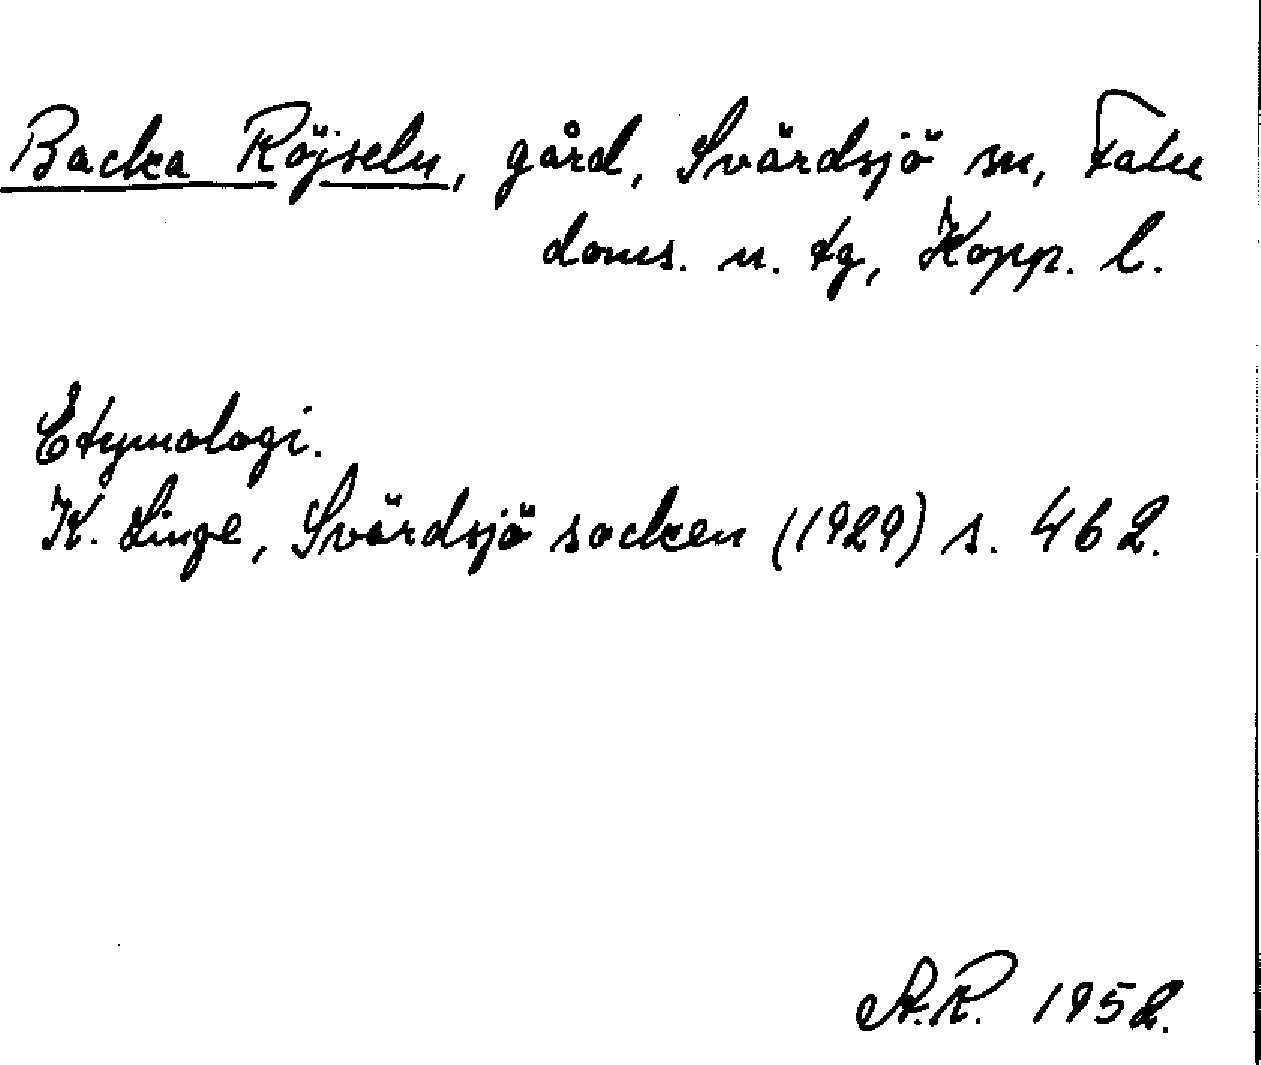 Backa Röjseln, gård, Svärdsjö sn, Falu
doms. n. tg, Kopp. l.
Etymologi.
K. Linge, Svärdsjö socken (1929) s. 462.
A.R. 1952.